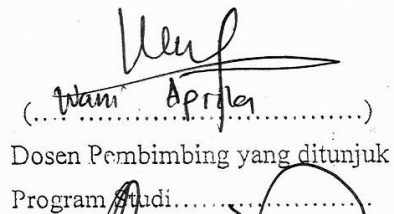 (....Wani Aprila....)
Dosen Pembimbing yang ditunjuk
Program Studi......................